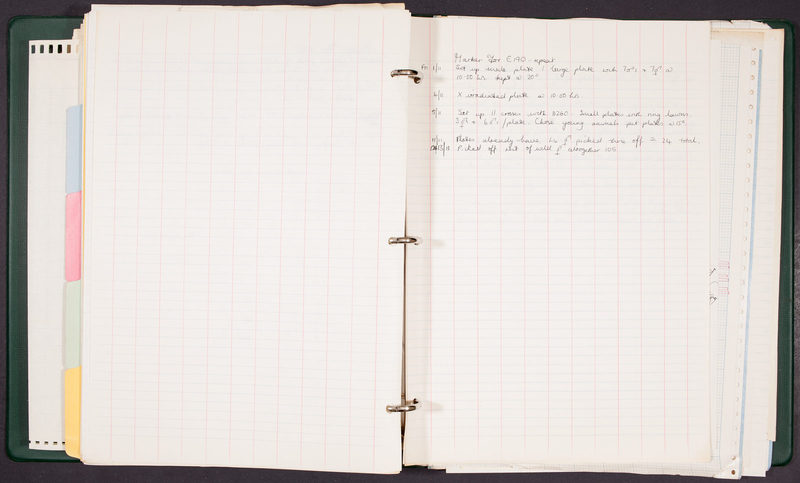 Marker for E140 repeat
Fri 1/11 Set up male plate 1 large plate with 7♂s + 7 @
10.00 hrs. kept @ 20°
4/11 X irradiated plate @ 10.00 hrs.
5/11 Set up 11 crosses with B260. Small plates with ring lawns.
3 + 6 /plate. Chose young animals put plates @ 15°.
11/11 Plates already have picked these off = 24 total.
13/11 Picked off rest of wild altogether 105